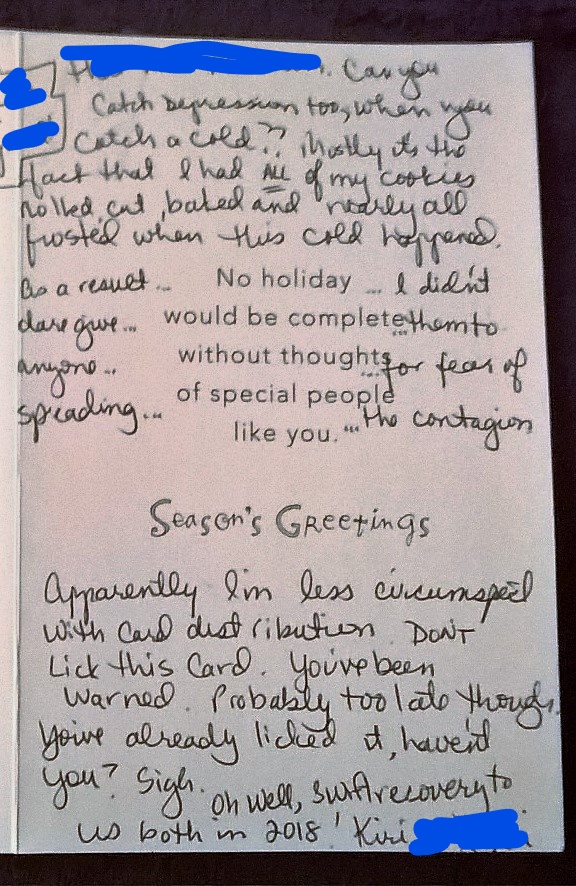 Can you
Catch Depression too, when you
Catch a cold?? Mostly its the
fact that I had ALL of my cookies
rolled, cut, baked and nearly all
frosted when this cold happened.
As a result... No holiday ... I didn't
dare give... would be complete them to
anyone... without thoughts ...for fear of
spreading... of special people
like you. ... the contagion
Season's Greetings
Apparently I'm less circumspect
with card distribution. DON'T
Lick this Card. You've been
Warned. Probably too late though.
You've already licked it, haven't
you? Sigh. Oh well, swift recovery to
us both in 2018! Kiri